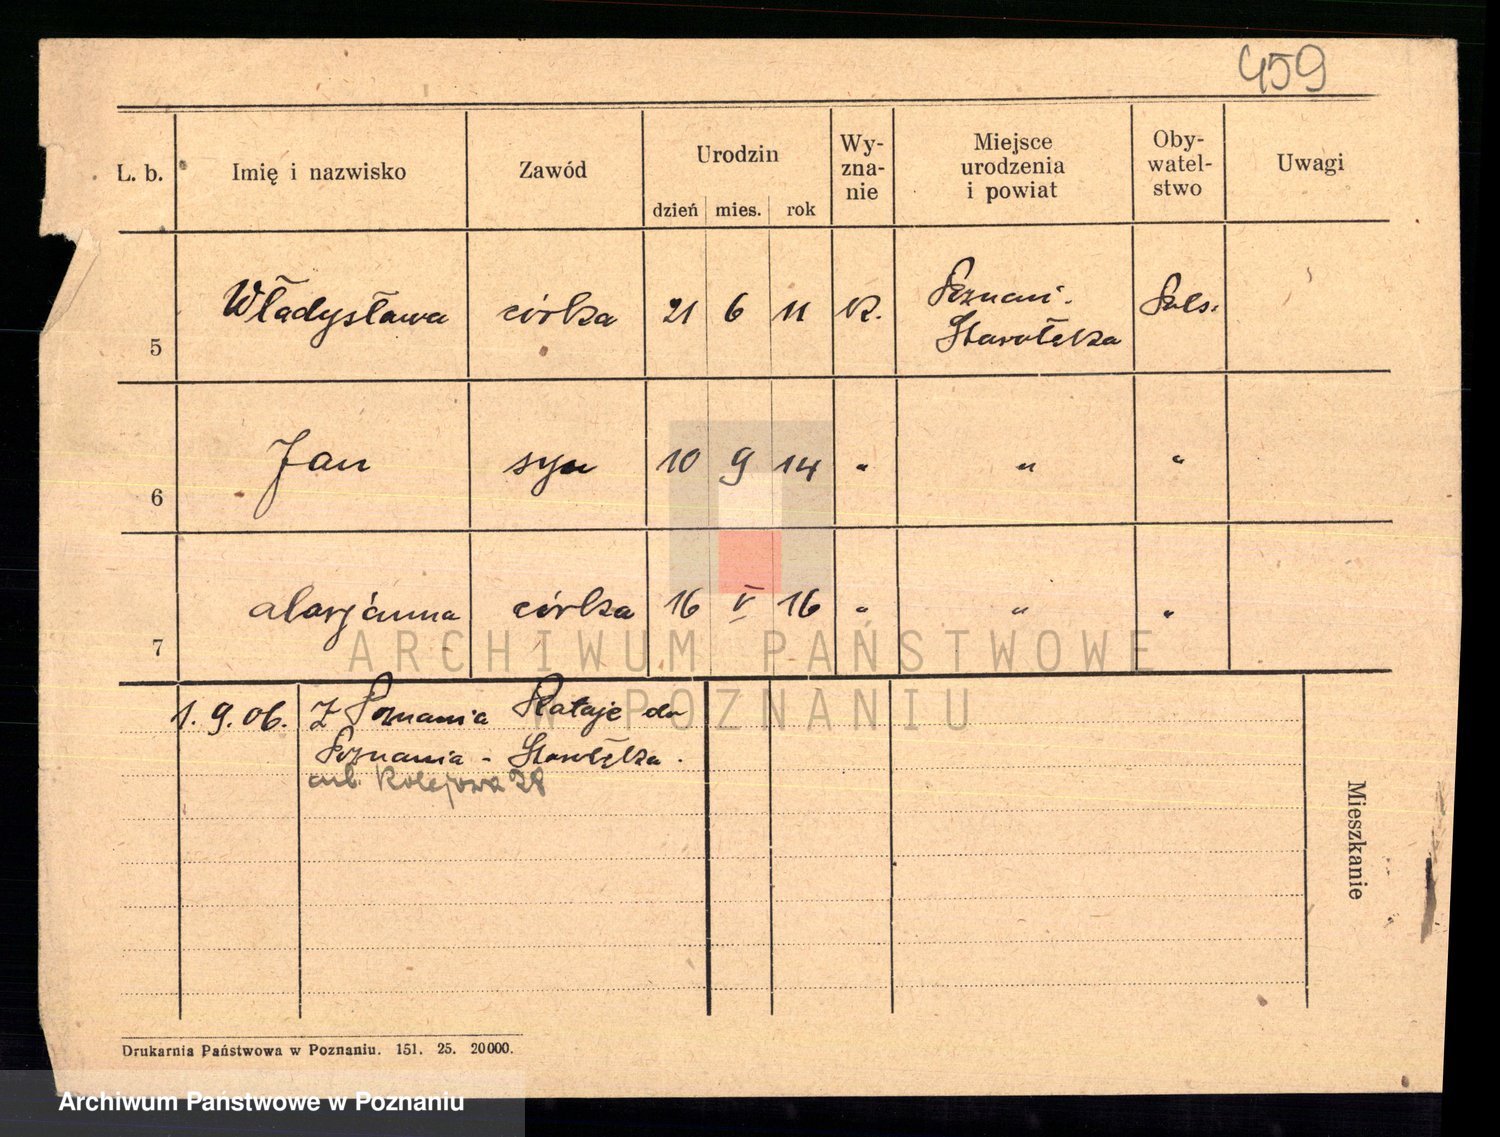 459
L. b.
Imię i nazwisko
Zawód
Urodzin
dzień
mies.
rok
Wy-
zna-
nie
Miejsce
urodzenia
i powiat
Oby-
watel-
stwo
Uwagi
5
Władysława
córka
21
6
11
K.
Poznań.
Starołęka
Pols.
6
Jan
syn
10
9
14
"
"
"
7
Marjanna
córka
16
V
16
"
"
"
1. 9. 06.
Z Poznania Rataje do
Poznania - Starołęka.
Kolejowa 28
Mieszkanie
Drukarnia Państwowa w Poznaniu. 151. 25. 20000.
ARCHIWUM PAŃSTWOWE
W POZNANIU
Archiwum Państwowe w Poznaniu